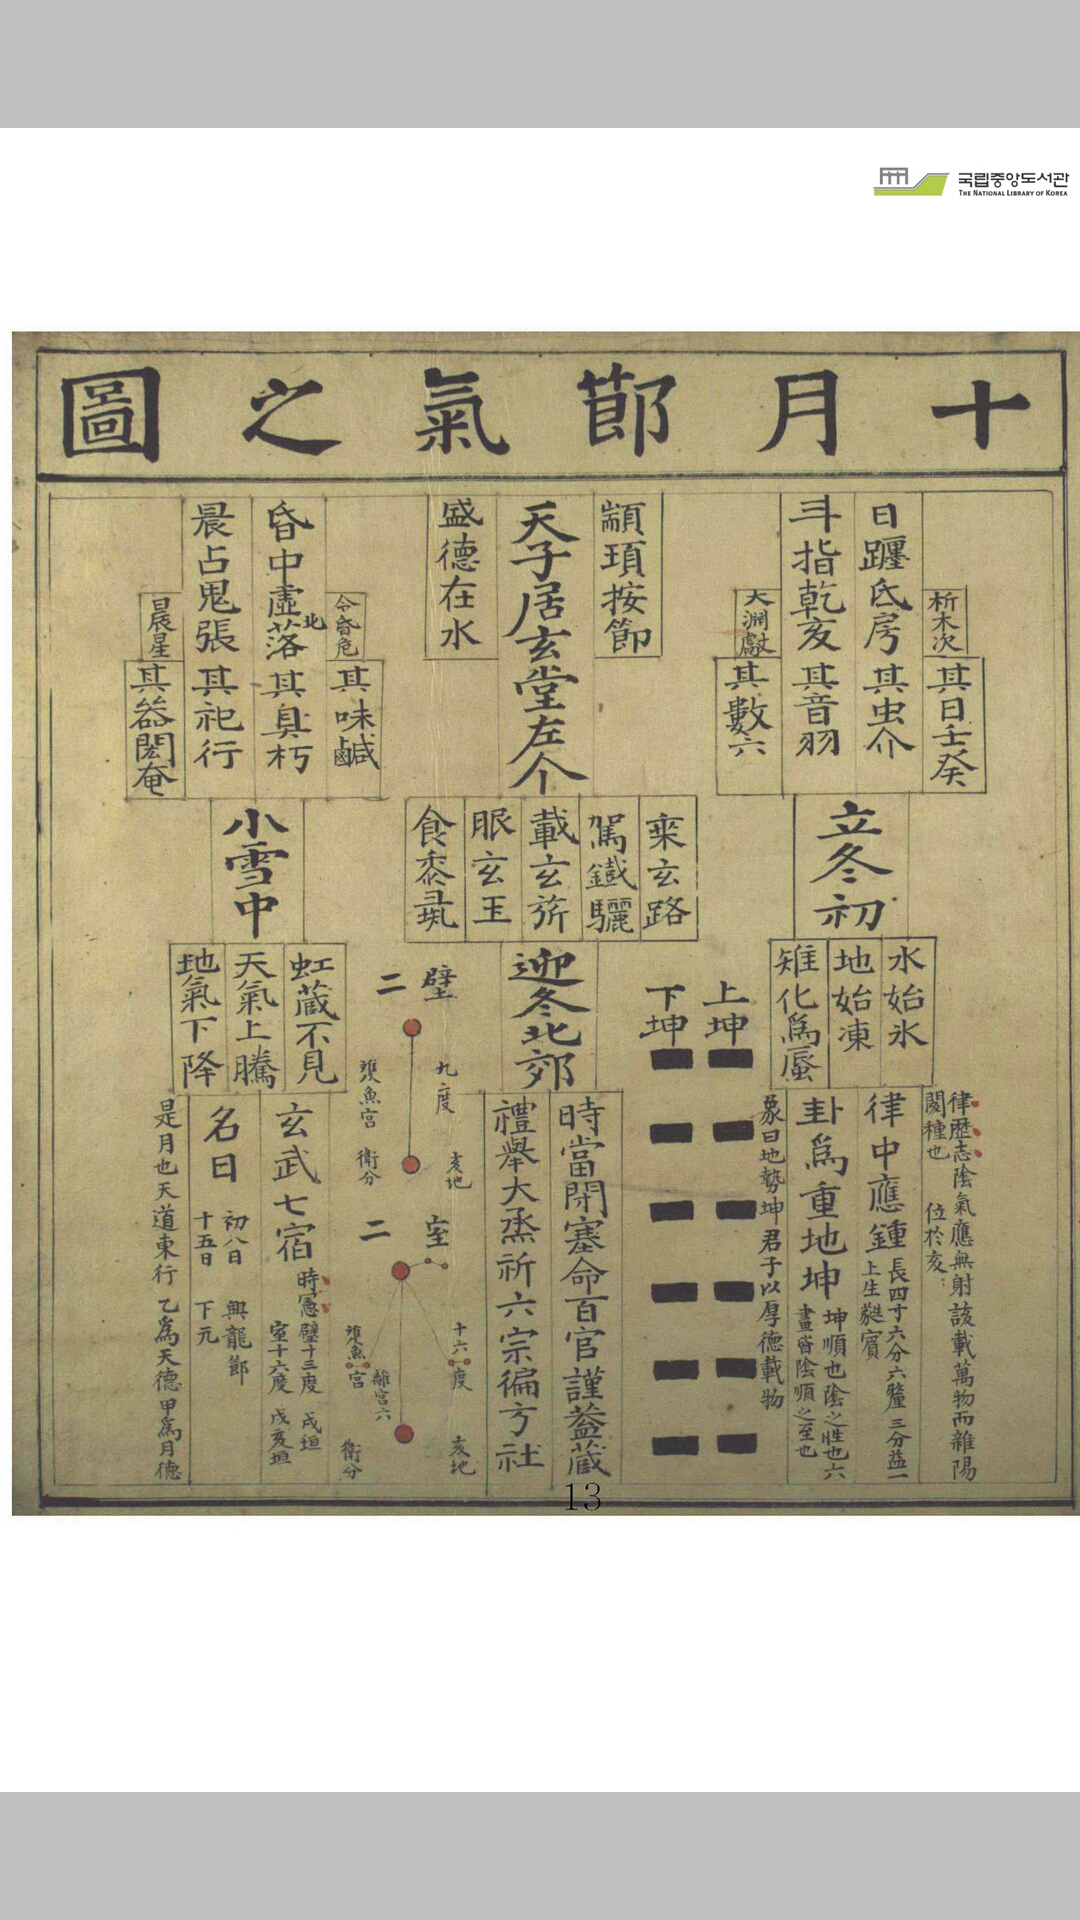 국립중앙도서관
THE NATIONAL LIBRARY OF KOREA
十月節氣之圖
析木次
日躔氐房
斗指乾亥
大淵獻
其日壬癸
其虫介
其音羽
其數六
顓頊按節
天子居玄堂左个
盛德在水
令昏危
昏中虛落
北
晨占鬼張
晨星
其味鹹
其臭朽
其祀行
其器閎奄
立冬初
乘玄路
駕鐵驪
載玄旂
服玄玉
食黍彘
小雪中
水始氷
地始凍
雉化爲蜃
上坤
下坤
迎冬北郊
壁二
九度
亥地
衛分
虹蔵不見
天氣上騰
地氣下降
律歷志陰氣應無射該載萬物而雜陽
閡種也 位於亥
律中應鍾
長四寸六分六釐三分益一
上生蕤賓
卦爲重地坤
坤順也陰之性也六
畫皆陰順之至也
象曰地勢坤君子以厚德載物
時當閉塞命百官謹蓋蔵
禮舉大烝祈六宗徧方社
室二
十六度
亥地
離宮六
衛分
玄武七宿
時憲壁十三度 戌垣
室十六度 戌亥垣
名日
初八日 興龍節
十五日 下元
是月也天道東行 乙爲天德甲爲月德
13